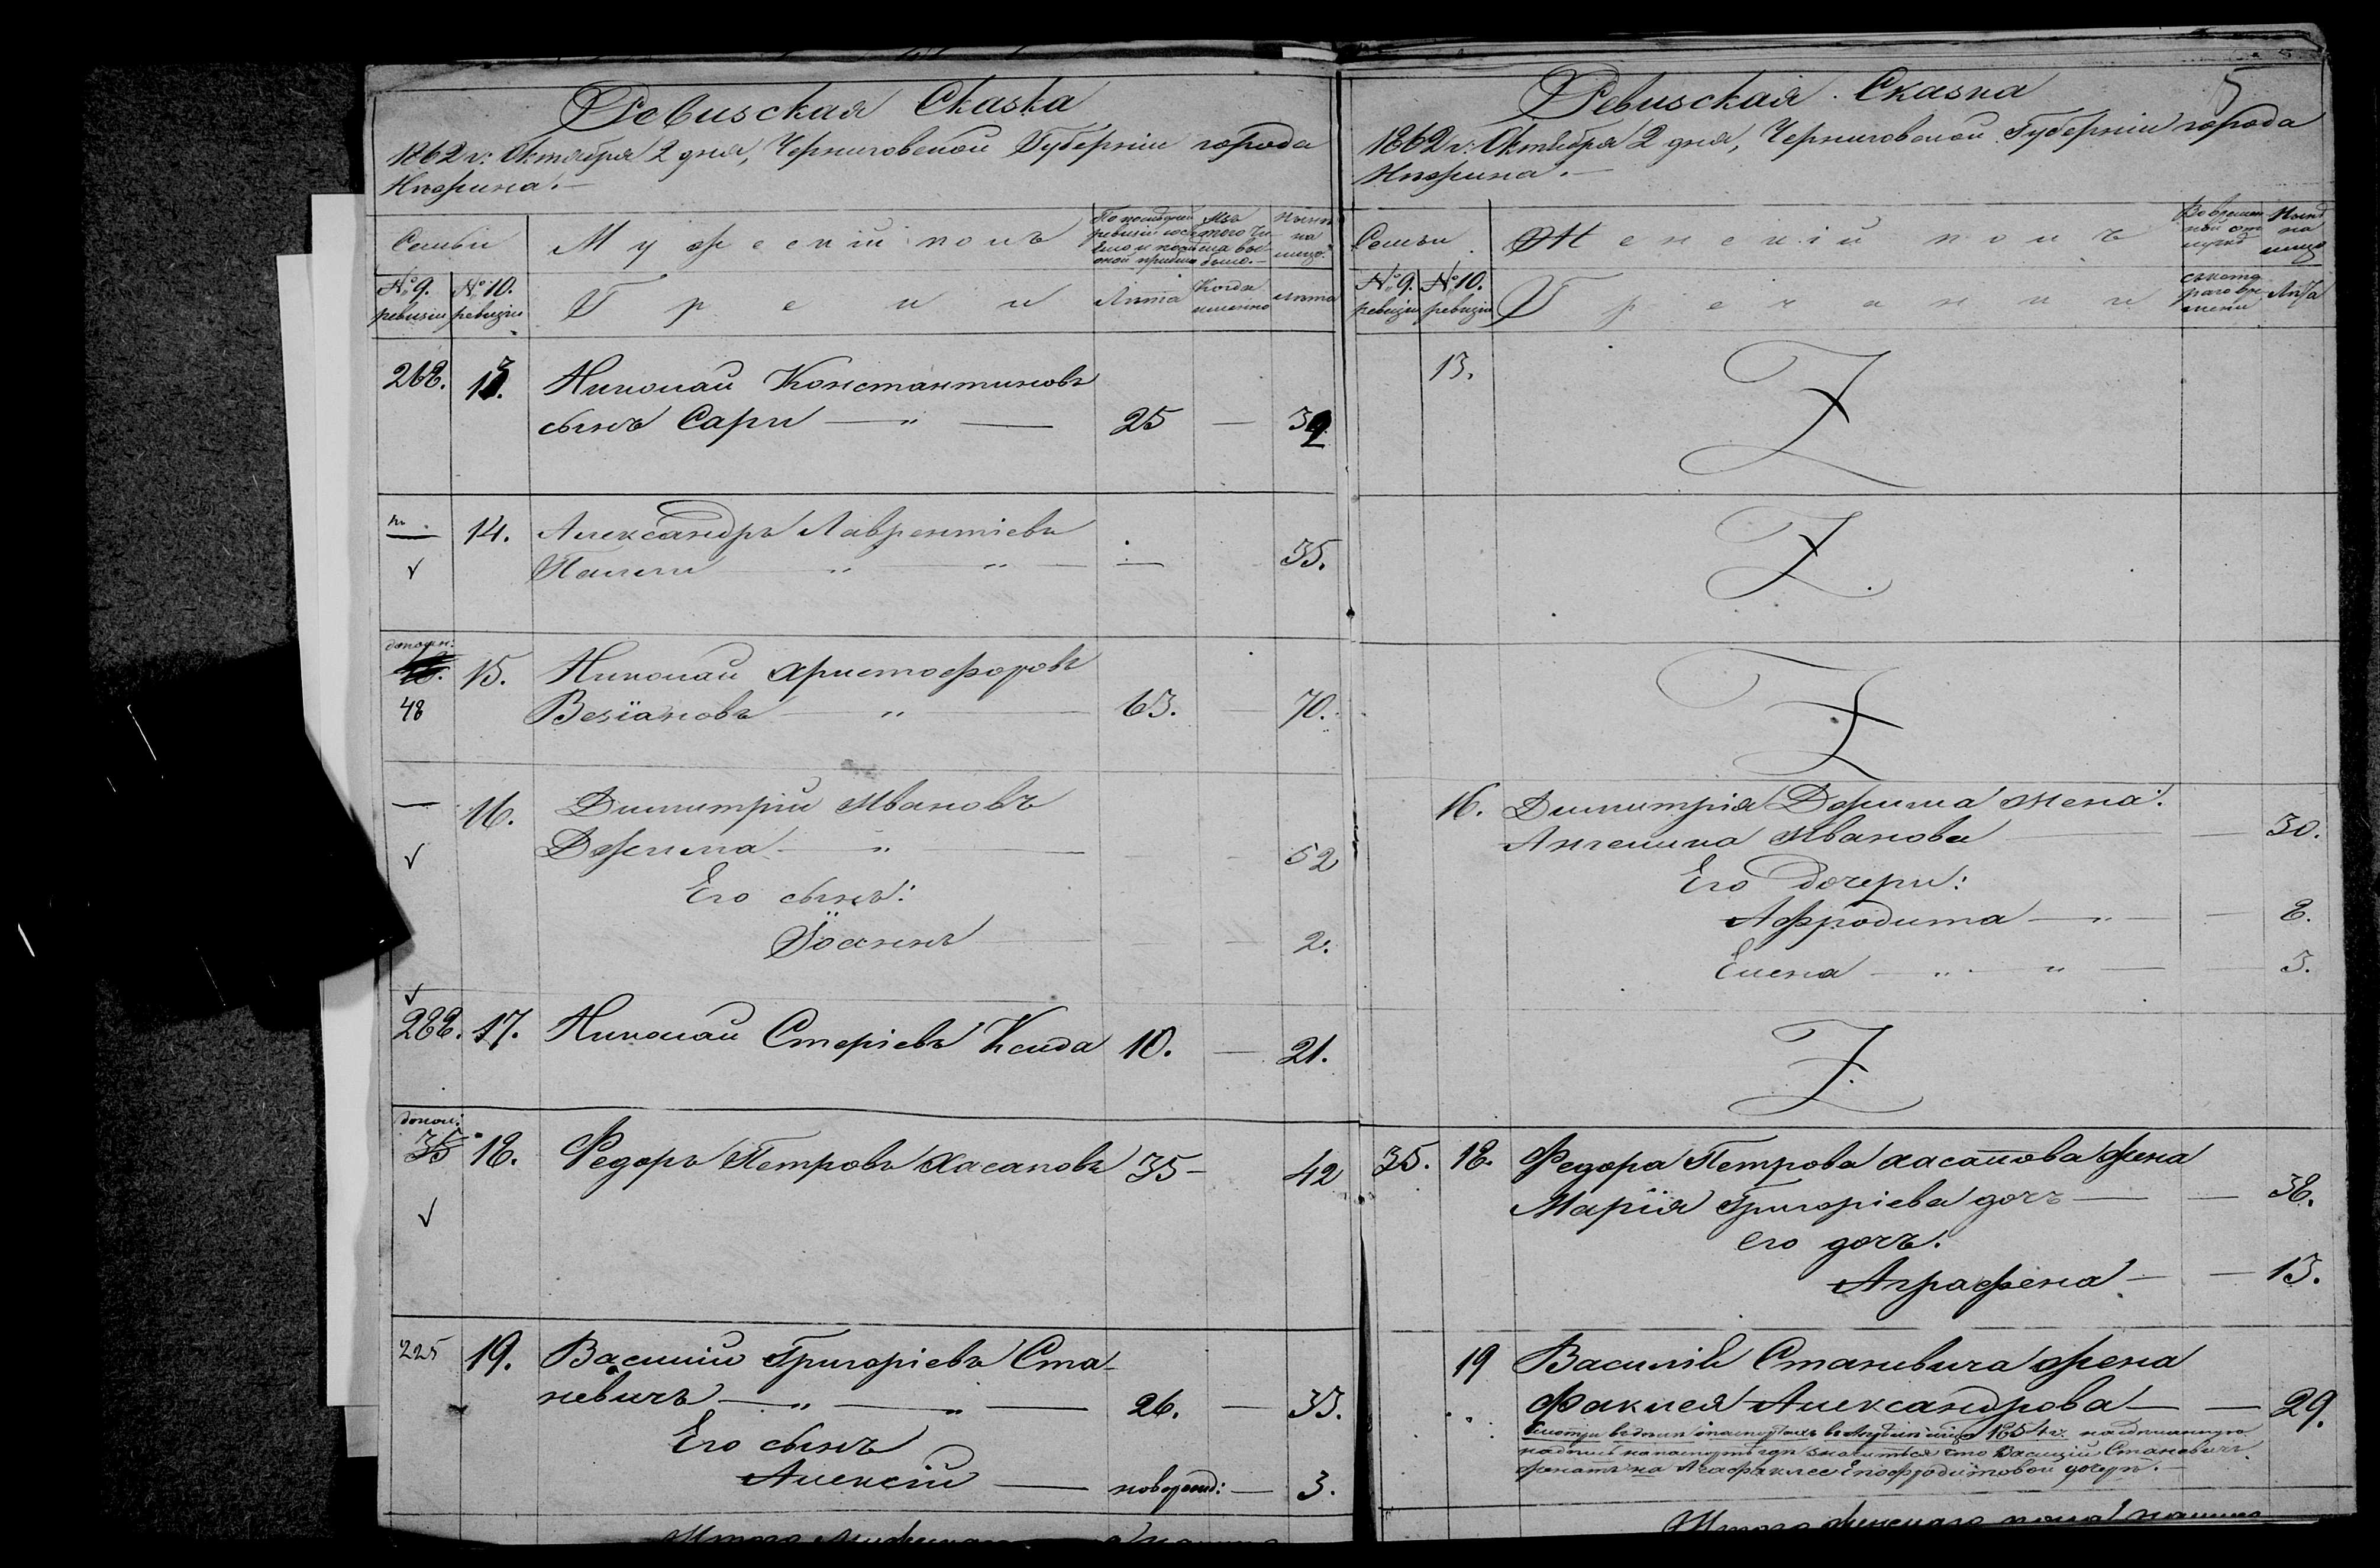 Ревизская Сказка
1862 г: Октября 2 дня, Черниговской Губерніи города
Нѣжина.
Семьи
Мужескій полъ
По послѣдней ревизіи состояло и послѣ оной прибыло
Изъ того числа выбыло.
Нынѣ на лицо.
№ 9. ревизіи
№ 10. ревизіи
Греки
Лѣта
Когда именно
Лѣта
268. 13. Николай Константиновъ
сынъ Сари — " — 25 — 32
14. Александръ Лаврентіевъ
" " — 35.
дополн:
48 15. Николай Христофоровъ
Везіановъ — " — 63. — 70.
— 16. Димитрій Ивановъ
Дерлиma — " — 52
Его сынъ:
Іоаннъ — 2.
288. 17. Николай Стеріевъ Ксида 10. — 21.
допол:
35 18. Федоръ Петровъ Хасаповъ 35 — 42
225 19. Василій Григоріевъ Ста-
невичъ — " — " — 26. — 33.
Его сынъ
Алексій — новорожд: — 3.
Ревизская Сказка
5
1862 г: Октября 2 дня, Черниговской Губерніи города
Нѣжина.
Семьи
Женскій полъ
Во временной отлучкѣ
Нынѣ на лицо
№ 9. ревизіи
№ 10. ревизіи
Гречанки
съ котораго времени
Лѣта
13.
16. Димитрія жена:
Ангелина Иванова — 30.
Его дочери:
Афродита — " — 8.
Елена — " " — 3.
35. 18. Федора Петрова Хасапова жена
Марія Григоріева дочь — — 38.
его дочь:
Аграфена — — 13.
19 Василія Станевича жена
Факлея Александрова — — 29.
1854 г.
Василій Станевичъ
женатъ на Епафродитовой дочерѣ.
Итого женскаго пола